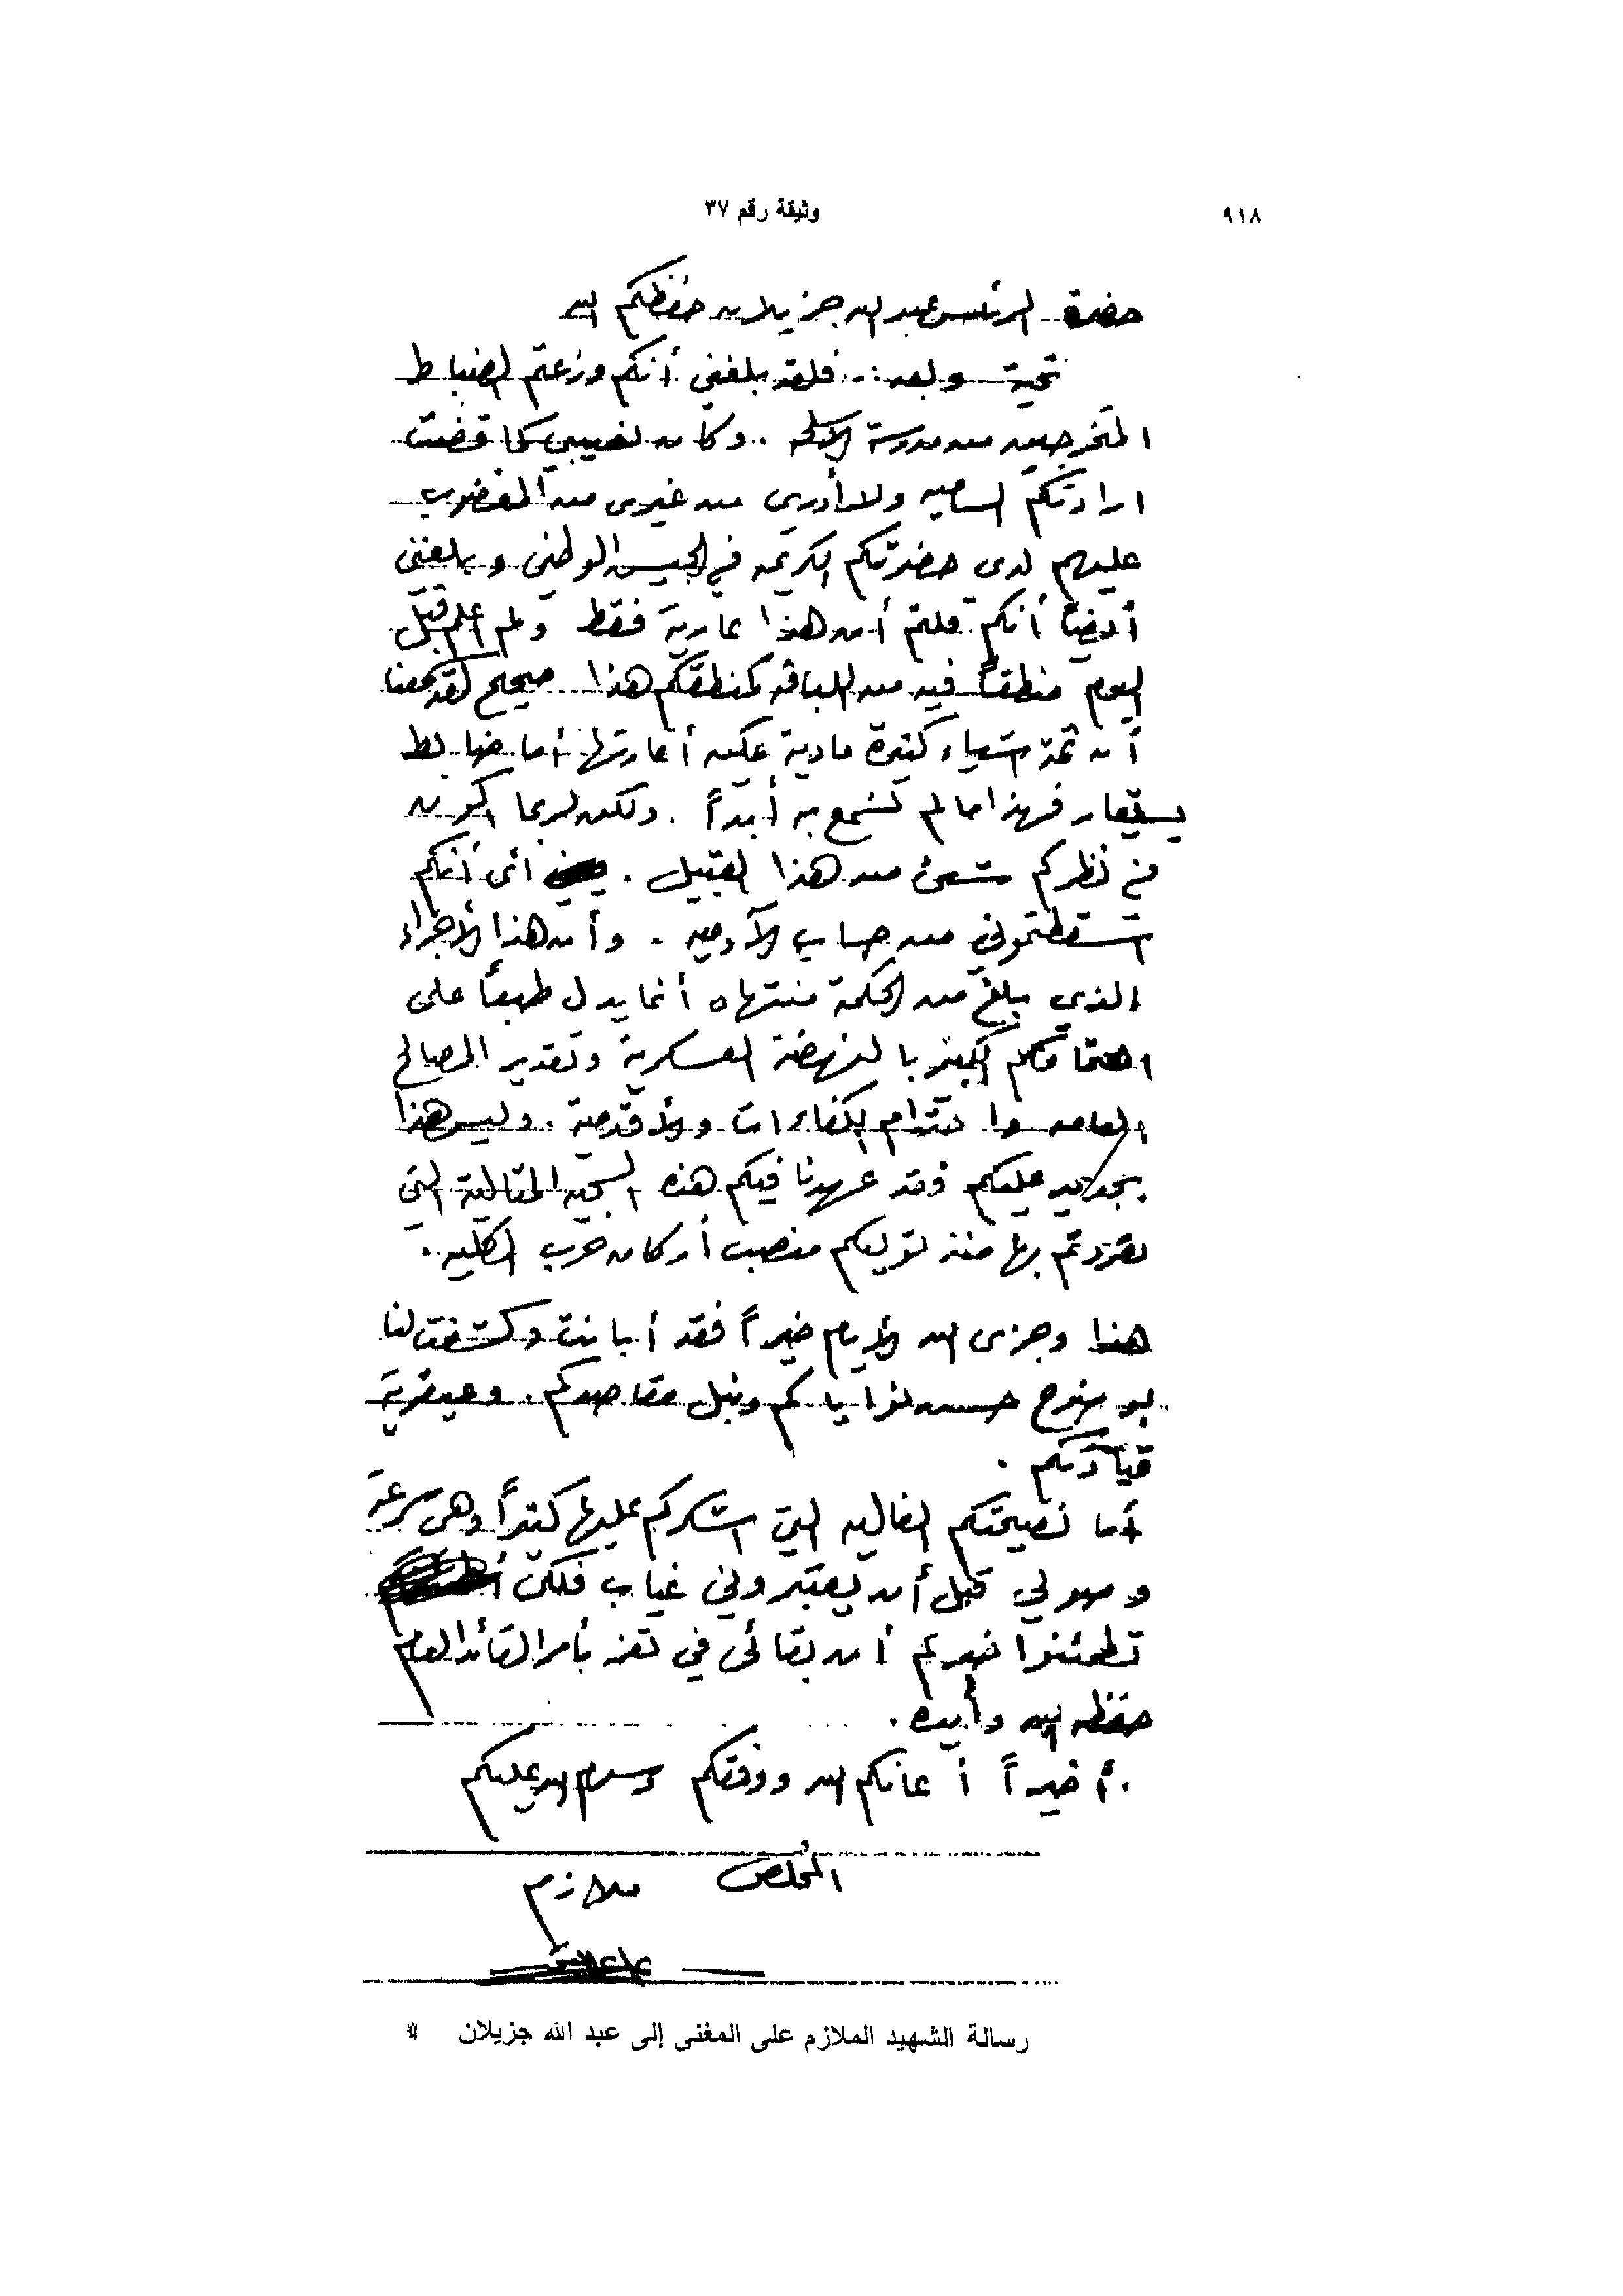 ٩١٨
وثيقة رقم ٣٧
حضرة الرئيس عبد الله جزيلان حفظكم الله
تحية وبعد :- فلقد بلغني أنكم وزعتم الضباط
المتخرجين من مدرسة الاسلحه . وكان نصيبي كما قضت
ارادتكم الساميه ولا أدري من غيري من المغضوب
عليهم لدى حضرتكم الكريمه في الجيش الوطني وبلغني
أيضاً أنكم قلتم أن هذا عارية فقط ولم اعلم قبل
اليوم منطقاً فيه من اللباقه كمنطقكم هذا صحيح لقد سمعنا
أن ثمة اشياء كثيرة مادية يمكن أعارتها أما ضابط
يستعار فهذا مالم نسمع به أبداً . ولكن لربما اكون
في نظركم شئ من هذا القبيل . اى أنكم
اسقطتموني من حساب الآدميه . وأن هذا الأجراء
الذي بلغ من الحكمة منتهاه أنما يدل طبعاً على
اهتمامكم الكبير بالنهضة العسكرية وتقدير المصالح
العامه واحترام الكفاءات والأقدمية . وليس هذا
بجديد عليكم فقد عهدنا فيكم هذه السجيه المثالية التي
تفردتم بها منذ توليكم منصب أركان حرب الكليه .
هذا وجزى الله الأيام خيراً فقد أبانت وكشفت لنا
بوضوح حسن نواياكم ونبل مقاصدكم . وعبقرية
قيادتكم .
أما نصيحتكم الغاليه التي اشكركم عليها كثيراً وهى سرعة
وصولي قبل أن يعتبروني غياب فلكى
تطمئنوا أن بقائى في تعز بأمر القائد العام
حفظه الله وأيده .
أخيراً أعانكم الله ووفقكم وسلام الله عليكم
المخلص ملازم
رسالة الشهيد الملازم على المغنى إلى عبد الله جزيلان